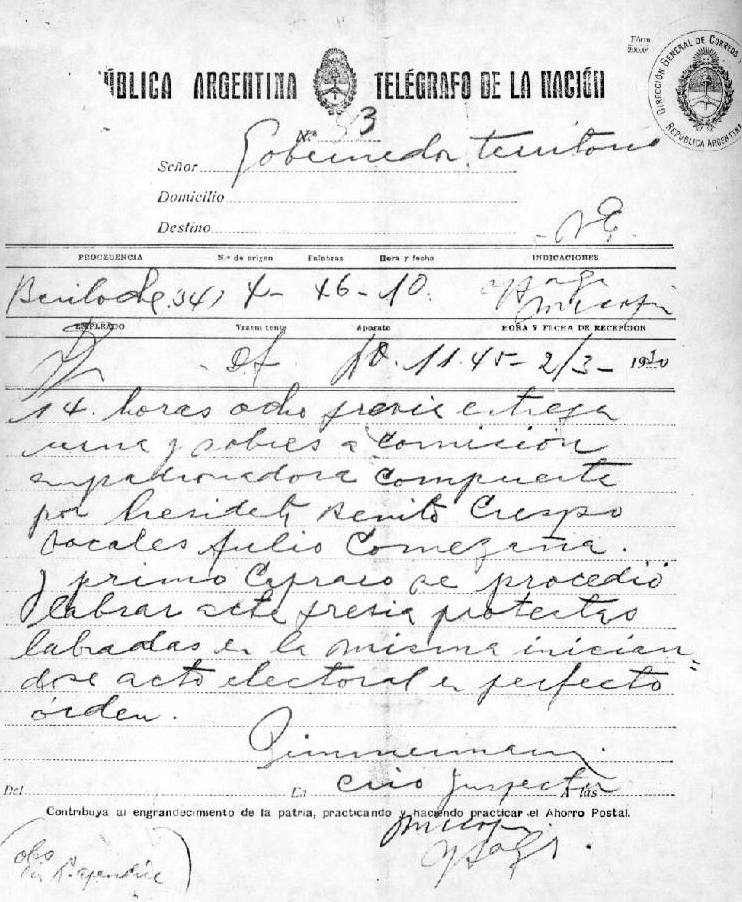 ÚBLICA ARGENTINA TELÉGRAFO DE LA NACIÓN
DIRECCIÓN GENERAL DE CORREOS Y
REPÚBLICA ARGENTINA
Nº 53
Señor Gobernador territorio
Domicilio
Destino
PROCEDENCIA N.º de origen Palabras Hora y fecha INDICACIONES
Bariloche 341 4- 46-10.
EMPLEADO Trasmitente Aparato HORA Y FECHA DE RECEPCION
10. 11.45- 2/3- 1930
14. horas ocho previe entrega
urna y sobres a comisión
empadronadora compuesta
por Presidente Benito Crespo
vocales Julio Comezaña.
y primo Capraro se procedió
labrar acta previa protestas
labradas en la misma inician=
dose acto electoral en perfecto
órden.
Zimmermann.
Crio Inspector
Del En A las
Contribuya al engrandecimiento de la patria, practicando y haciendo practicar el Ahorro Postal.